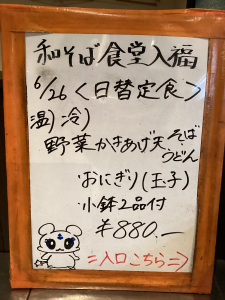 和そば食堂入福
6/26〈日替定食〉
温)冷)
野菜かきあげ天そば
うどん
・おにぎり(玉子)
・小鉢2品付
¥880.―
入口こちら